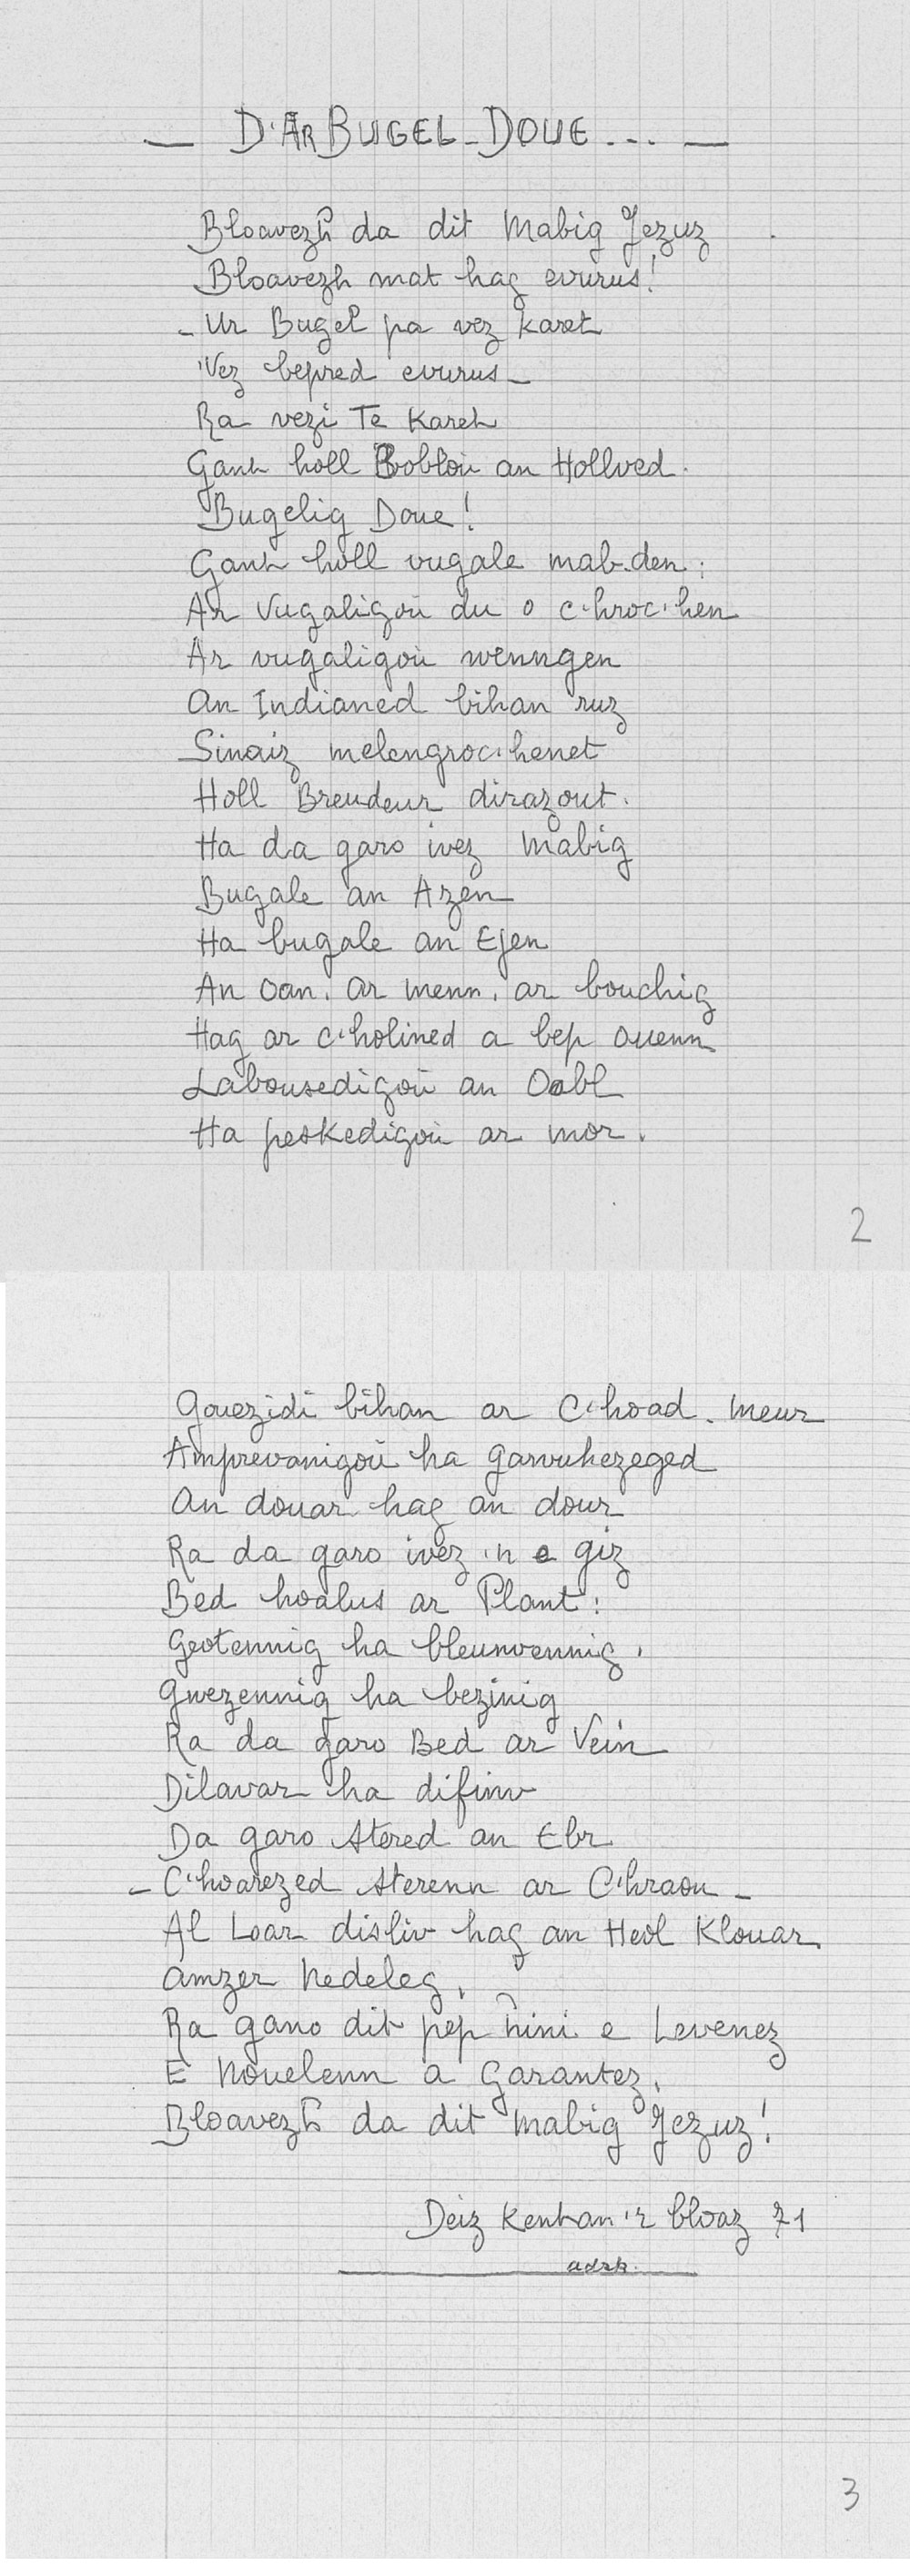 — D'AR BUGEL-DOUE... —
Bloavezh da dit Mabig Jezuz
Bloavezh mat hag evurus!
- Ur Bugel pa vez karet
'Vez bepred evurus -
Ra vezi Te Karet
Gant holl Boblou an Hollved.
Bugelig Doue!
Gant holl vugale mab-den:
Ar Vugaligoù du o c'hroc'hen
Ar vugaligoù wenngen
An Indianed bihan ruz
Sinaiz melengroc'henet
Holl Breudeur dirazout.
Ha da garo ivez Mabig
Bugale an Azen
Ha bugale an Ejen
An Oan, ar menn, ar bouchig
Hag ar c'holined a bep ouenn
Labousedigoù an Oabl
Ha peskedigoù ar mor.
2
Gouezidi bihan ar C'hoad-meur
Amprevanigoù ha garvuhezeged
An douar hag an dour
Ra da garo ivez 'n e giz
Bed hoalus ar Plant:
Geotennig ha bleunvennig,
Gwezennig ha bezinig
Ra da garo Bed ar Vein
Dilavar ha difinv
Da garo Stered an Ebr
- C'hoarezed Sterenn ar C'hraou -
Al Loar disliv hag an Heol Klouar
amzer Nedeleg,
Ra gano dit pep hini e Levenez
E Nouelenn a Garantez,
Bloavezh da dit Mabig Jezuz!
Deiz Kentañ 'r bloaz 71
adzk.
3